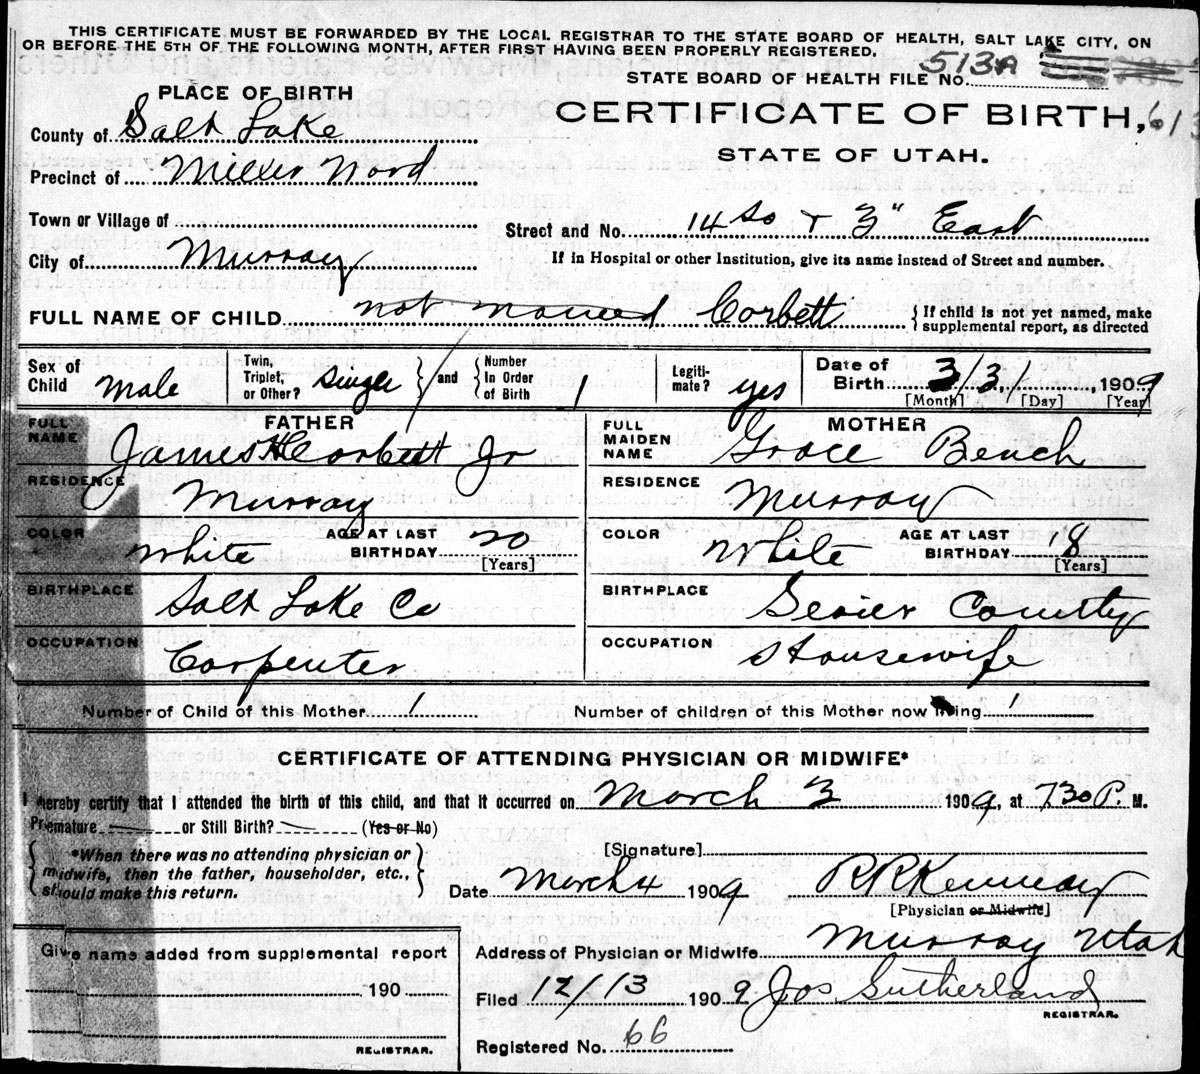 THIS CERTIFICATE MUST BE FORWARDED BY THE LOCAL REGISTRAR TO THE STATE BOARD OF HEALTH, SALT LAKE CITY, ON
OR BEFORE THE 5TH OF THE FOLLOWING MONTH, AFTER FIRST HAVING BEEN PROPERLY REGISTERED.
STATE BOARD OF HEALTH FILE No. 513A
PLACE OF BIRTH
CERTIFICATE OF BIRTH,
County of Salt Lake
STATE OF UTAH.
Precinct of Miller Ward
Town or Village of
Street and No. 14 So + 3" East
City of Murray
If in Hospital or other Institution, give its name instead of Street and number.
FULL NAME OF CHILD not named Corbett
{If child is not yet named, make
supplemental report, as directed
Sex of Child Male
Twin, Triplet, or Other? Single
and
Number In Order of Birth 1
Legitimate? yes
Date of Birth 3/3/, 1909
[Month] [Day] [Year]
FATHER
MOTHER
FULL NAME James H Corbett Jr
FULL MAIDEN NAME Grace Bench
RESIDENCE Murray
RESIDENCE Murray
COLOR White
AGE AT LAST BIRTHDAY 20 [Years]
COLOR White
AGE AT LAST BIRTHDAY 18 [Years]
BIRTHPLACE Salt Lake Co
BIRTHPLACE Sevier County
OCCUPATION Carpenter
OCCUPATION Housewife
Number of Child of this Mother 1
Number of children of this Mother now living 1
CERTIFICATE OF ATTENDING PHYSICIAN OR MIDWIFE*
I hereby certify that I attended the birth of this child, and that it occurred on March 3 1909, at 730 P. M.
Premature or Still Birth? (Yes or No)
*When there was no attending physician or
midwife, then the father, householder, etc.,
should make this return.
[Signature]
Date March 4 1909
[Physician or Midwife]
Give name added from supplemental report
190
REGISTRAR.
Address of Physician or Midwife Murray Utah
Filed 12/13 1909 Jos Sutherland
REGISTRAR.
Registered No. 66